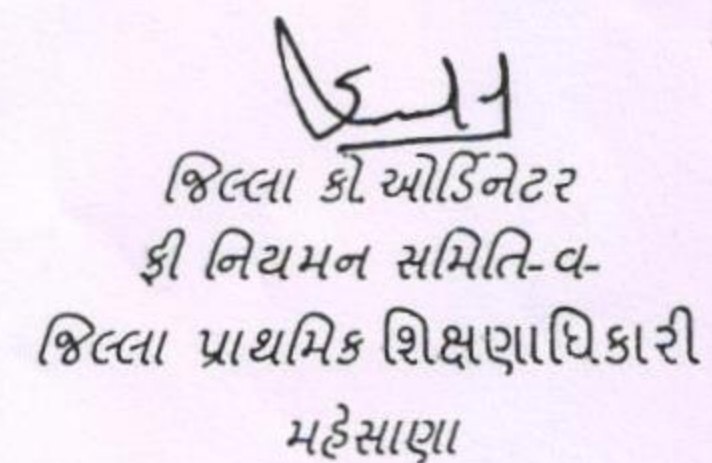 જિલ્લા કો.ઓર્ડિનેટર
ફી નિયમન સમિતિ-વ-
જિલ્લા પ્રાથમિક શિક્ષણાધિકારી
મહેસાણા